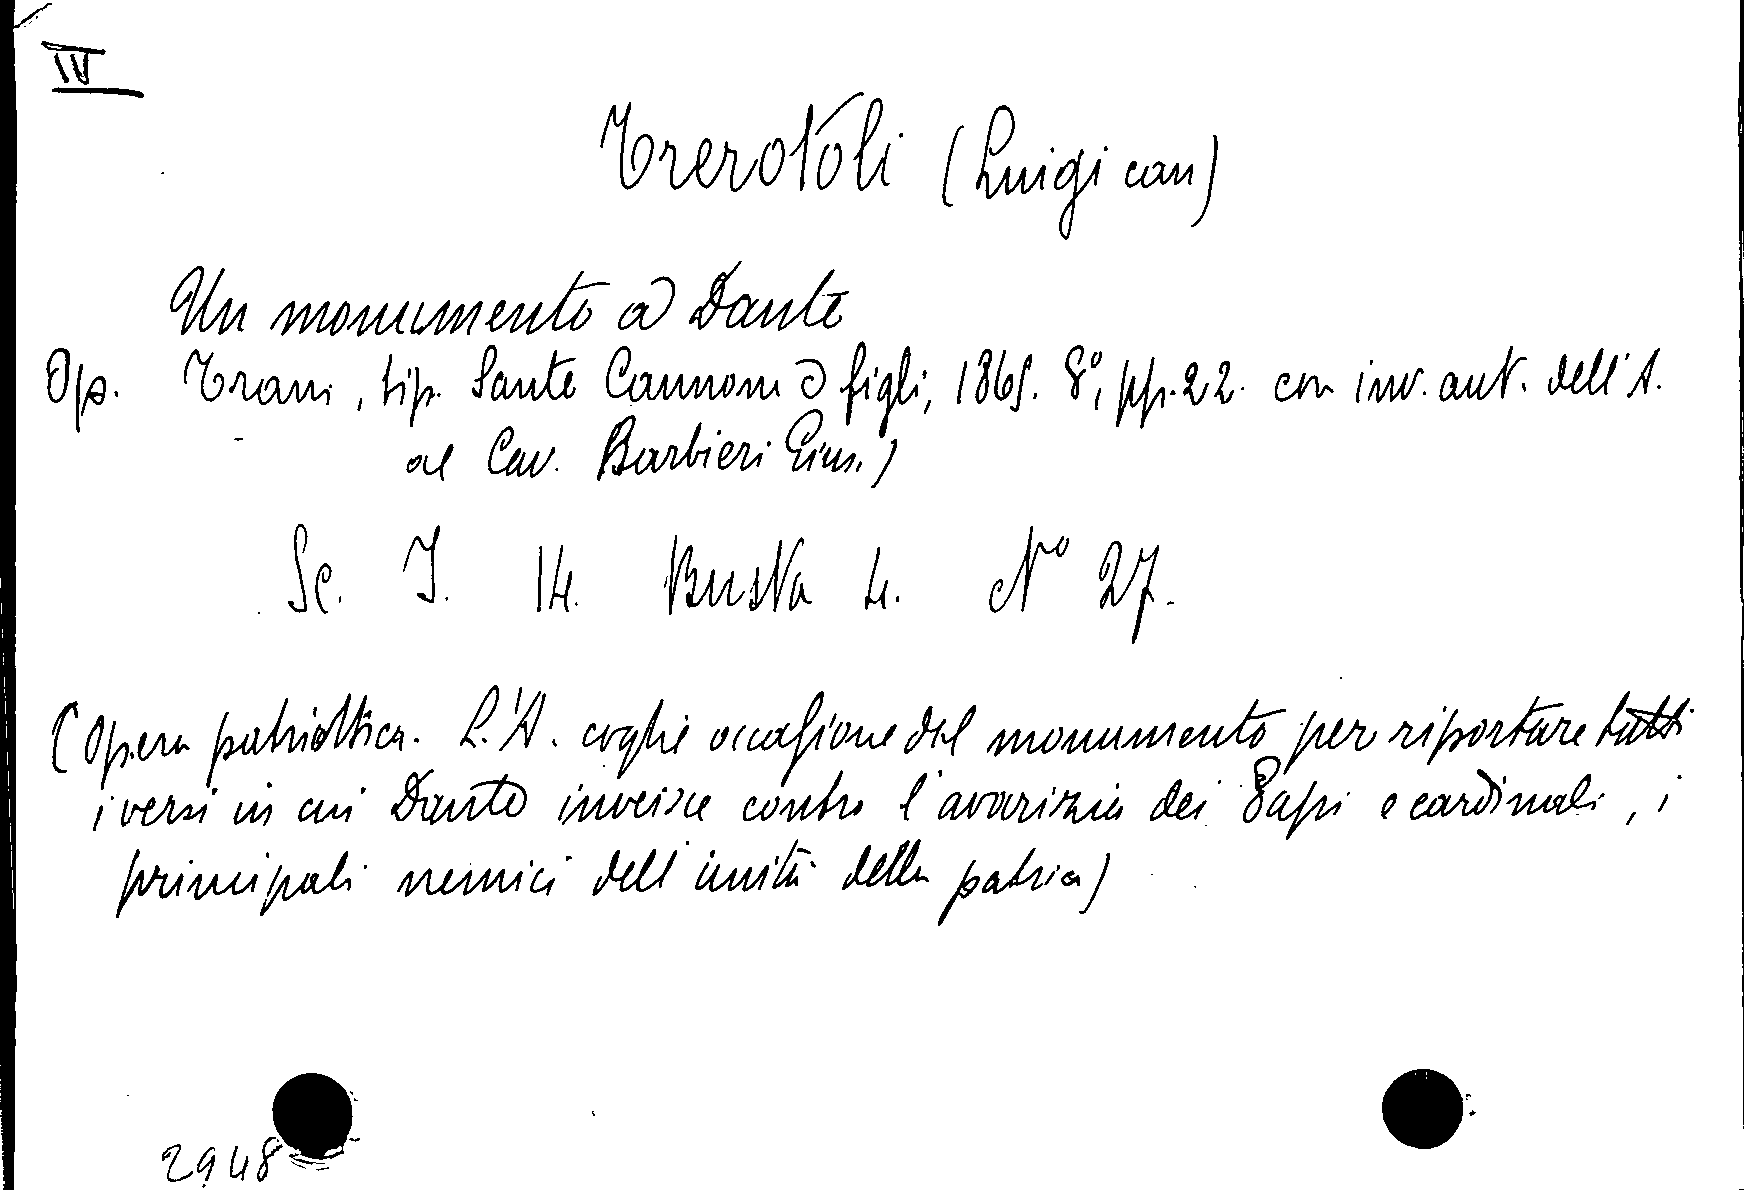 IV
Trerotoli (Luigi can)
Un monumento a Dante
Op. Trani, tip. Sante Cannone e figli, 1865. 8°, pp. 22. con inv. aut. dell'A.
al Cav. Barbieri Gius.)
Sc. I. 14. Busta 4. N° 27.
(Opera patriottica. L'A. coglie occasione del monumento per riportare tutti
i versi in cui Dante inveisce contro l'avarizia dei Papi e cardinali, i
principali nemici dell'unità della patria)
2948